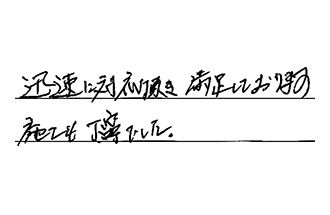 迅速に対応頂き満足しております
施工も丁寧でした。